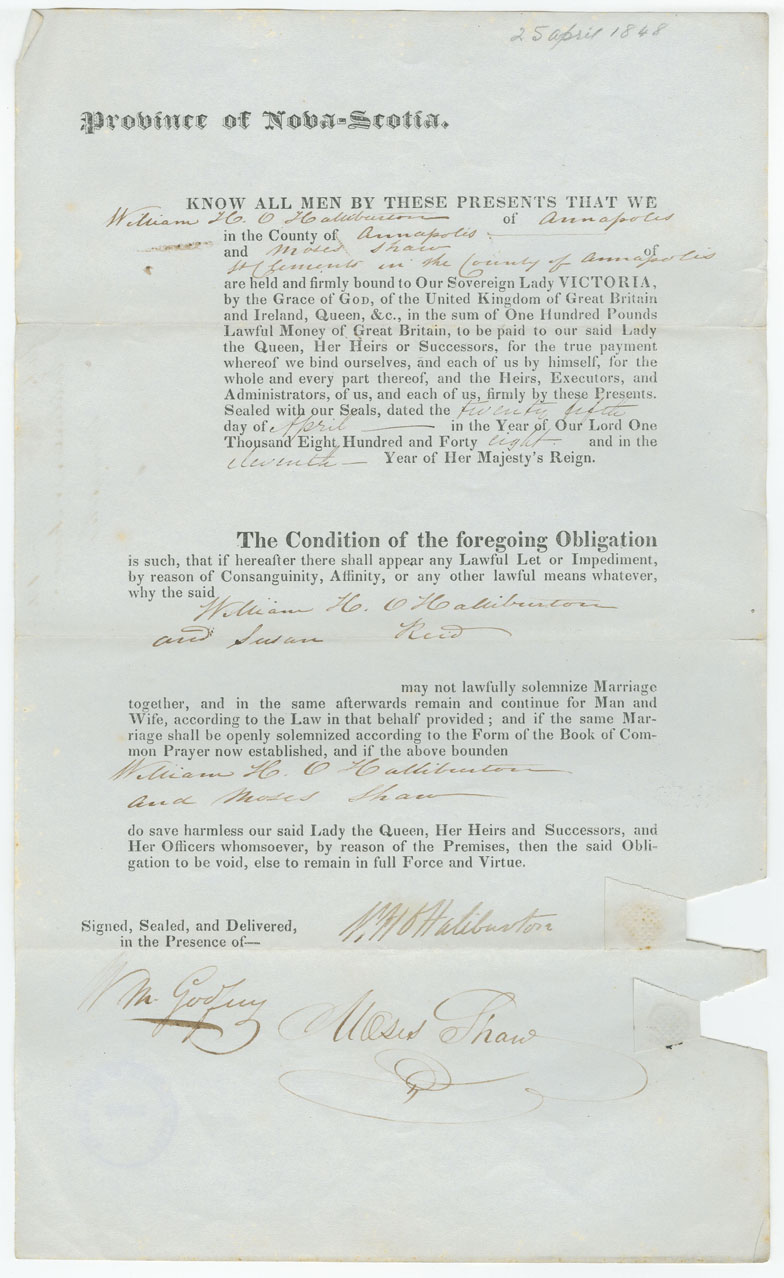 25 april 1848
Province of Nova-Scotia.
KNOW ALL MEN BY THESE PRESENTS THAT WE
William H. O Halliburton of Annapolis
in the County of Annapolis
and Moses Shaw of
St Clements in the County of Annapolis
are held and firmly bound to Our Sovereign Lady VICTORIA,
by the Grace of GOD, of the United Kingdom of Great Britain
and Ireland, Queen, &c., in the sum of One Hundred Pounds
Lawful Money of Great Britain, to be paid to our said Lady
the Queen, Her Heirs or Successors, for the true payment
whereof we bind ourselves, and each of us by himself, for the
whole and every part thereof, and the Heirs, Executors, and
Administrators, of us, and each of us, firmly by these Presents.
Sealed with our Seals, dated the twenty fifth
day of April in the Year of Our Lord One
Thousand Eight Hundred and Forty eight and in the
eleventh Year of Her Majesty's Reign.
The Condition of the foregoing Obligation
is such, that if hereafter there shall appear any Lawful Let or Impediment,
by reason of Consanguinity, Affinity, or any other lawful means whatever,
why the said
William H. O Halliburton
and Susan Reid
may not lawfully solemnize Marriage
together, and in the same afterwards remain and continue for Man and
Wife, according to the Law in that behalf provided; and if the same Mar-
riage shall be openly solemnized according to the Form of the Book of Com-
mon Prayer now established, and if the above bounden
William H. O Halliburton
and Moses Shaw
do save harmless our said Lady the Queen, Her Heirs and Successors, and
Her Officers whomsoever, by reason of the Premises, then the said Obli-
gation to be void, else to remain in full Force and Virtue.
Signed, Sealed, and Delivered,
in the Presence of—
W H O Haliburton
Wm. Godfrey
Moses Shaw